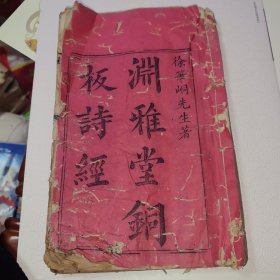 徐華峒先生著
淵雅堂銅
板詩經